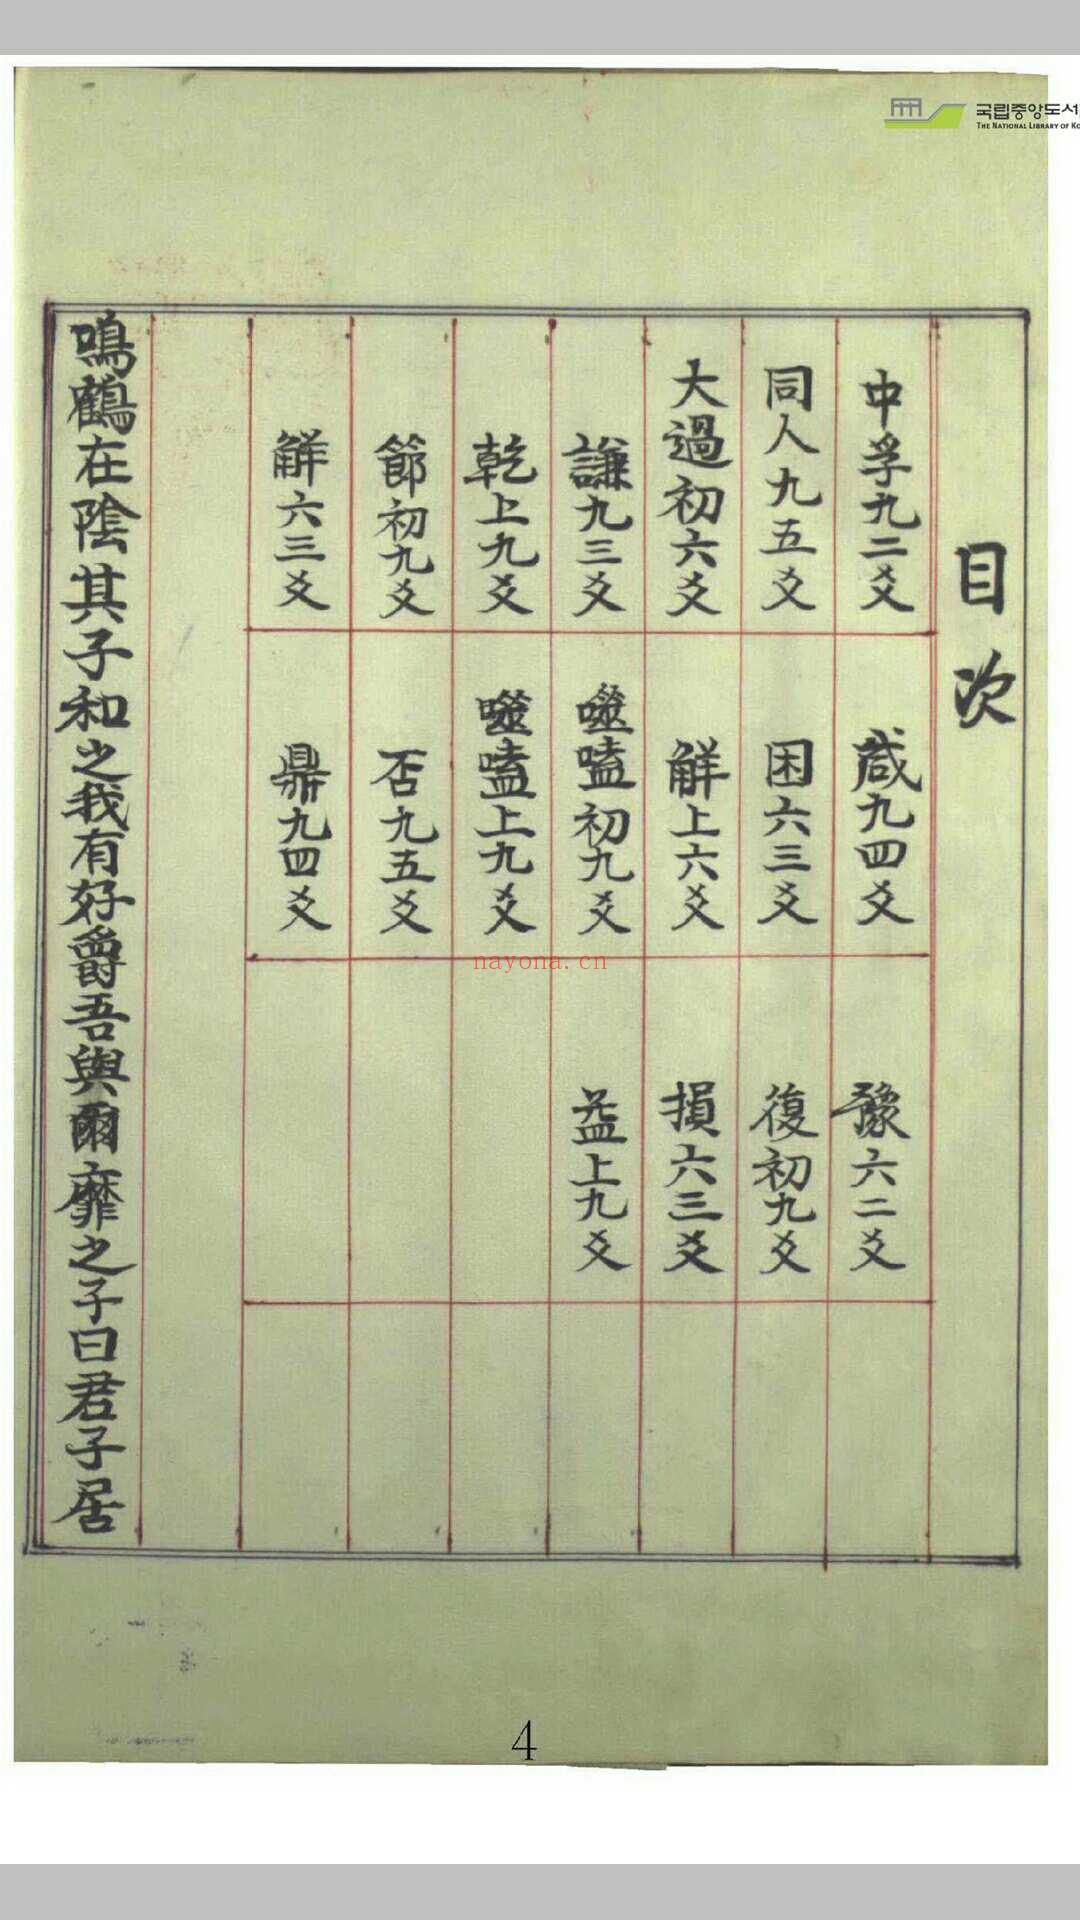 국립중앙도서
THE NATIONAL LIBRARY OF KO
目次
中孚九二爻
同人九五爻
大過初六爻
謙九三爻
乾上九爻
節初九爻
解六三爻
咸九四爻
困六三爻
解上六爻
噬嗑初九爻
噬嗑上九爻
否九五爻
鼎九四爻
豫六二爻
復初九爻
損六三爻
益上九爻
鳴鶴在陰其子和之我有好爵吾與爾靡之子曰君子居
nayona.cn
4